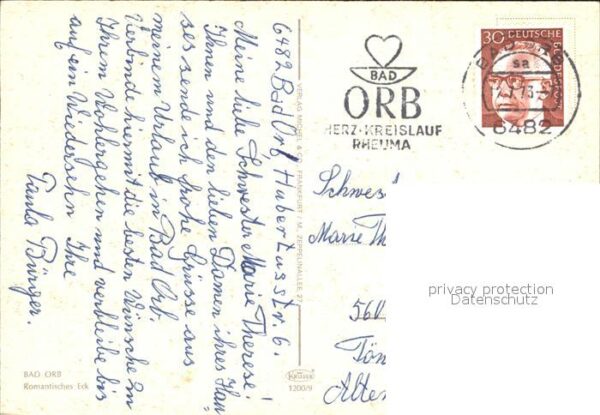 6482 Bad Orb Hubertusstr. 6.
Meine liebe Schwester Marie Therese!
Ihnen und den lieben Damen ihres Hau,
ses sende ich frohe Grüsse aus
meinem Urlaub in Bad Orb.
Verbinde hiermit die besten Wünsche Im
Ihrem Wohlergehen und verbleibe bis
auf ein Wiedersehen Ihre
Paula Bürger.
BAD ORB
Romantisches Eck
VERLAG MICHEL & CO., FRANKFURT / M., ZEPPELINALLEE 27
KRÜGER
1200/9
BAD
ORB
HERZ-KREISLAUF
RHEUMA
30 DEUTSCHE BUNDESPOST
sa
73
6482
Schwes
Marie Th
560
Tön
Alten
privacy protection
Datenschutz